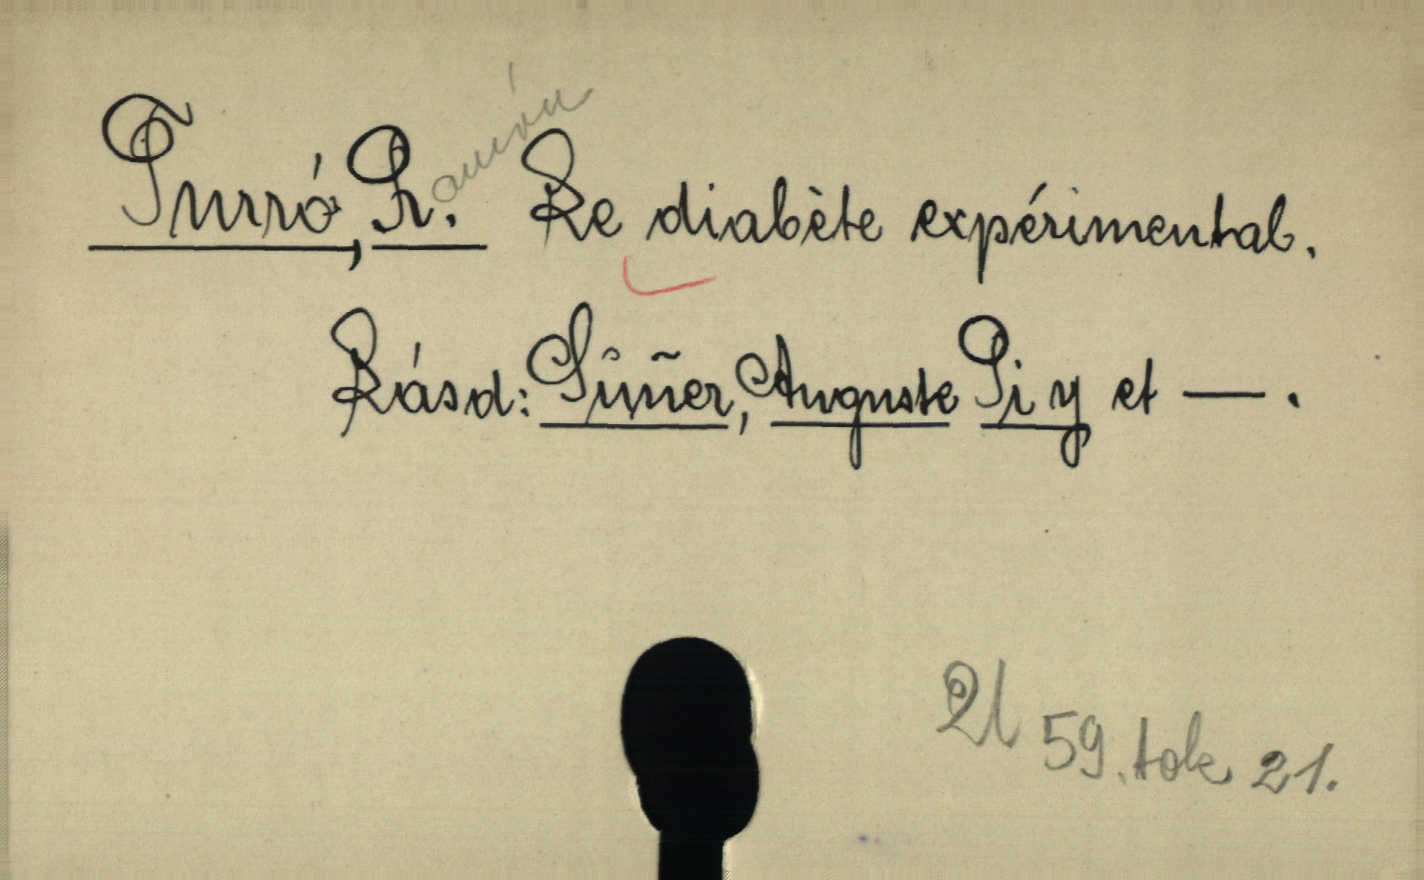 Turró, Ramón. Le diabète expérimental.
Lásd: Suñer, Auguste Pi y et —.
21 59. tok 21.